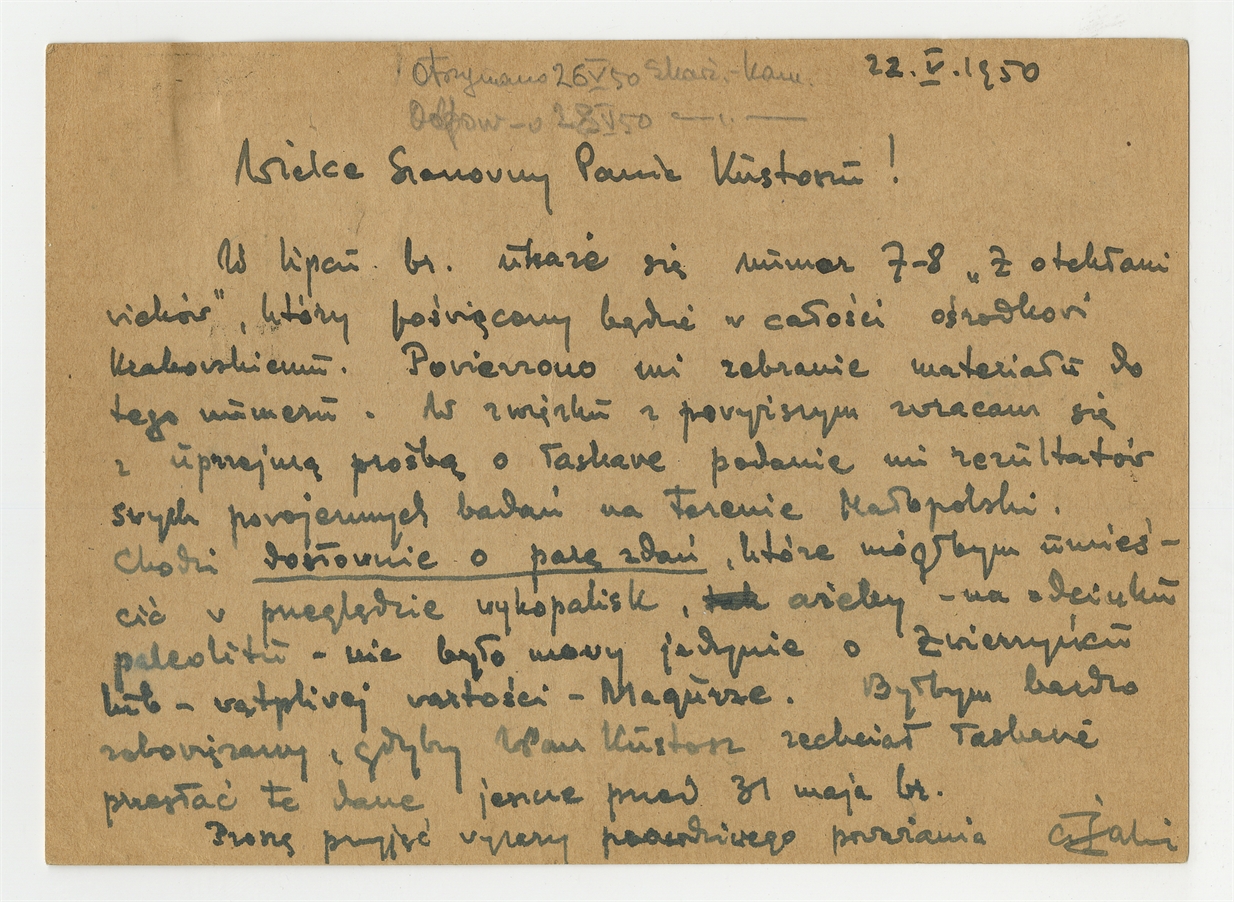 Otrzymano 26 V 50 Skarż.-Kam.
22.V.1950
Odpow-n 28 V 50 —„—
Wielce Szanowny Panie Kustoszu!
W lipcu br. ukaże się numer 7-8 „Z otchłani
wieków", który poświęcony będzie w całości ośrodkowi
Krakowskiemu. Powierzono mi zebranie materiału do
tego numeru. W związku z powyższym zwracam się
z uprzejmą prośbą o łaskawe podanie mi rezultatów
swych powojennych badań na terenie Małopolski.
Chodzi dosłownie o parę zdań, które mógłbym umieś-
cić w przeglądzie wykopalisk, ażeby - na odcinku
paleolitu - nie było mowy jedynie o Zwierzyńcu
lub - wątpliwej wartości - Magurze. Byłbym bardzo
zobowiązany, gdyby WPan Kustosz zechciał łaskawie
przesłać te dane jeszcze przed 31 maja br.
Proszę przyjąć wyrazy prawdziwego poważania Żaki